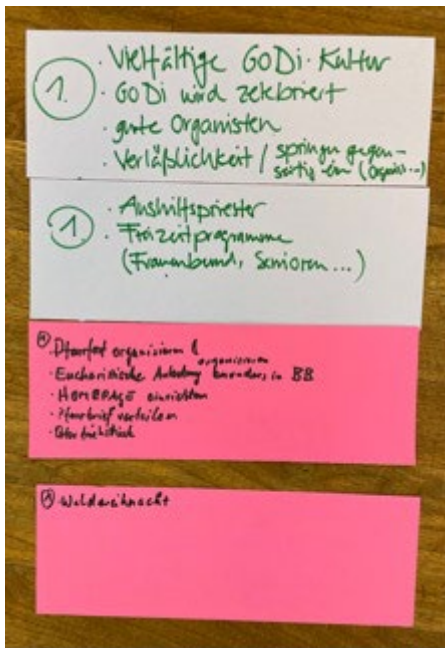 1.
· Vielfältige GoDi-Kultur
· GoDi wird zelebriert
· gute Organisten
· Verläßlichkeit / springen gegen-
seitig ein (Organis...)
1
· Aushilfspriester
· Freizeitprogramme
(Frauenbund, Senioren...)
· Pfarrfest organisieren &
organisieren
· Eucharistische Anbetung besonders in BB
· HOMEPAGE einrichten
· Pfarrbrief verteilen
· Osterfrühstück
· Waldweihnacht